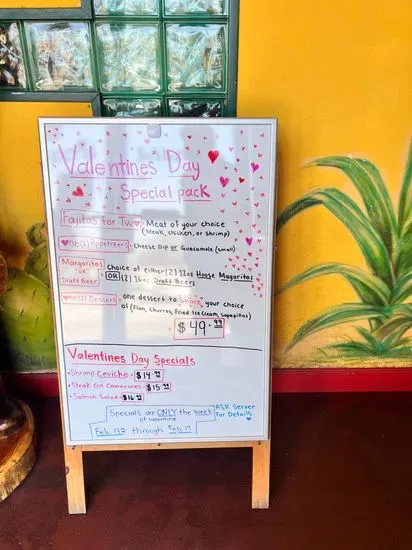 Valentines Day
Special pack
Fajitas for Two Meat of your choice
(Steak, chicken, or shrimp)
one(1) Appetizers: cheese Dip or Guacamole (small)
Margaritas
OR
Draft Beers
choice of either (2) 12oz House Margaritas
OR (2) 16oz Draft Beers
one(1) Dessert: one dessert to share, your choice
of (Flan, Churros, Fried Ice Cream, sopapillas)
$49.99
Valentines Day Specials
• Shrimp Ceviche • $14.99
• Steak con Camarones • $15.99
• Salmon Salad • $16.99
Specials are ONLY the week
of valentine
Feb. 13 through Feb 19
ASK Server
For Details